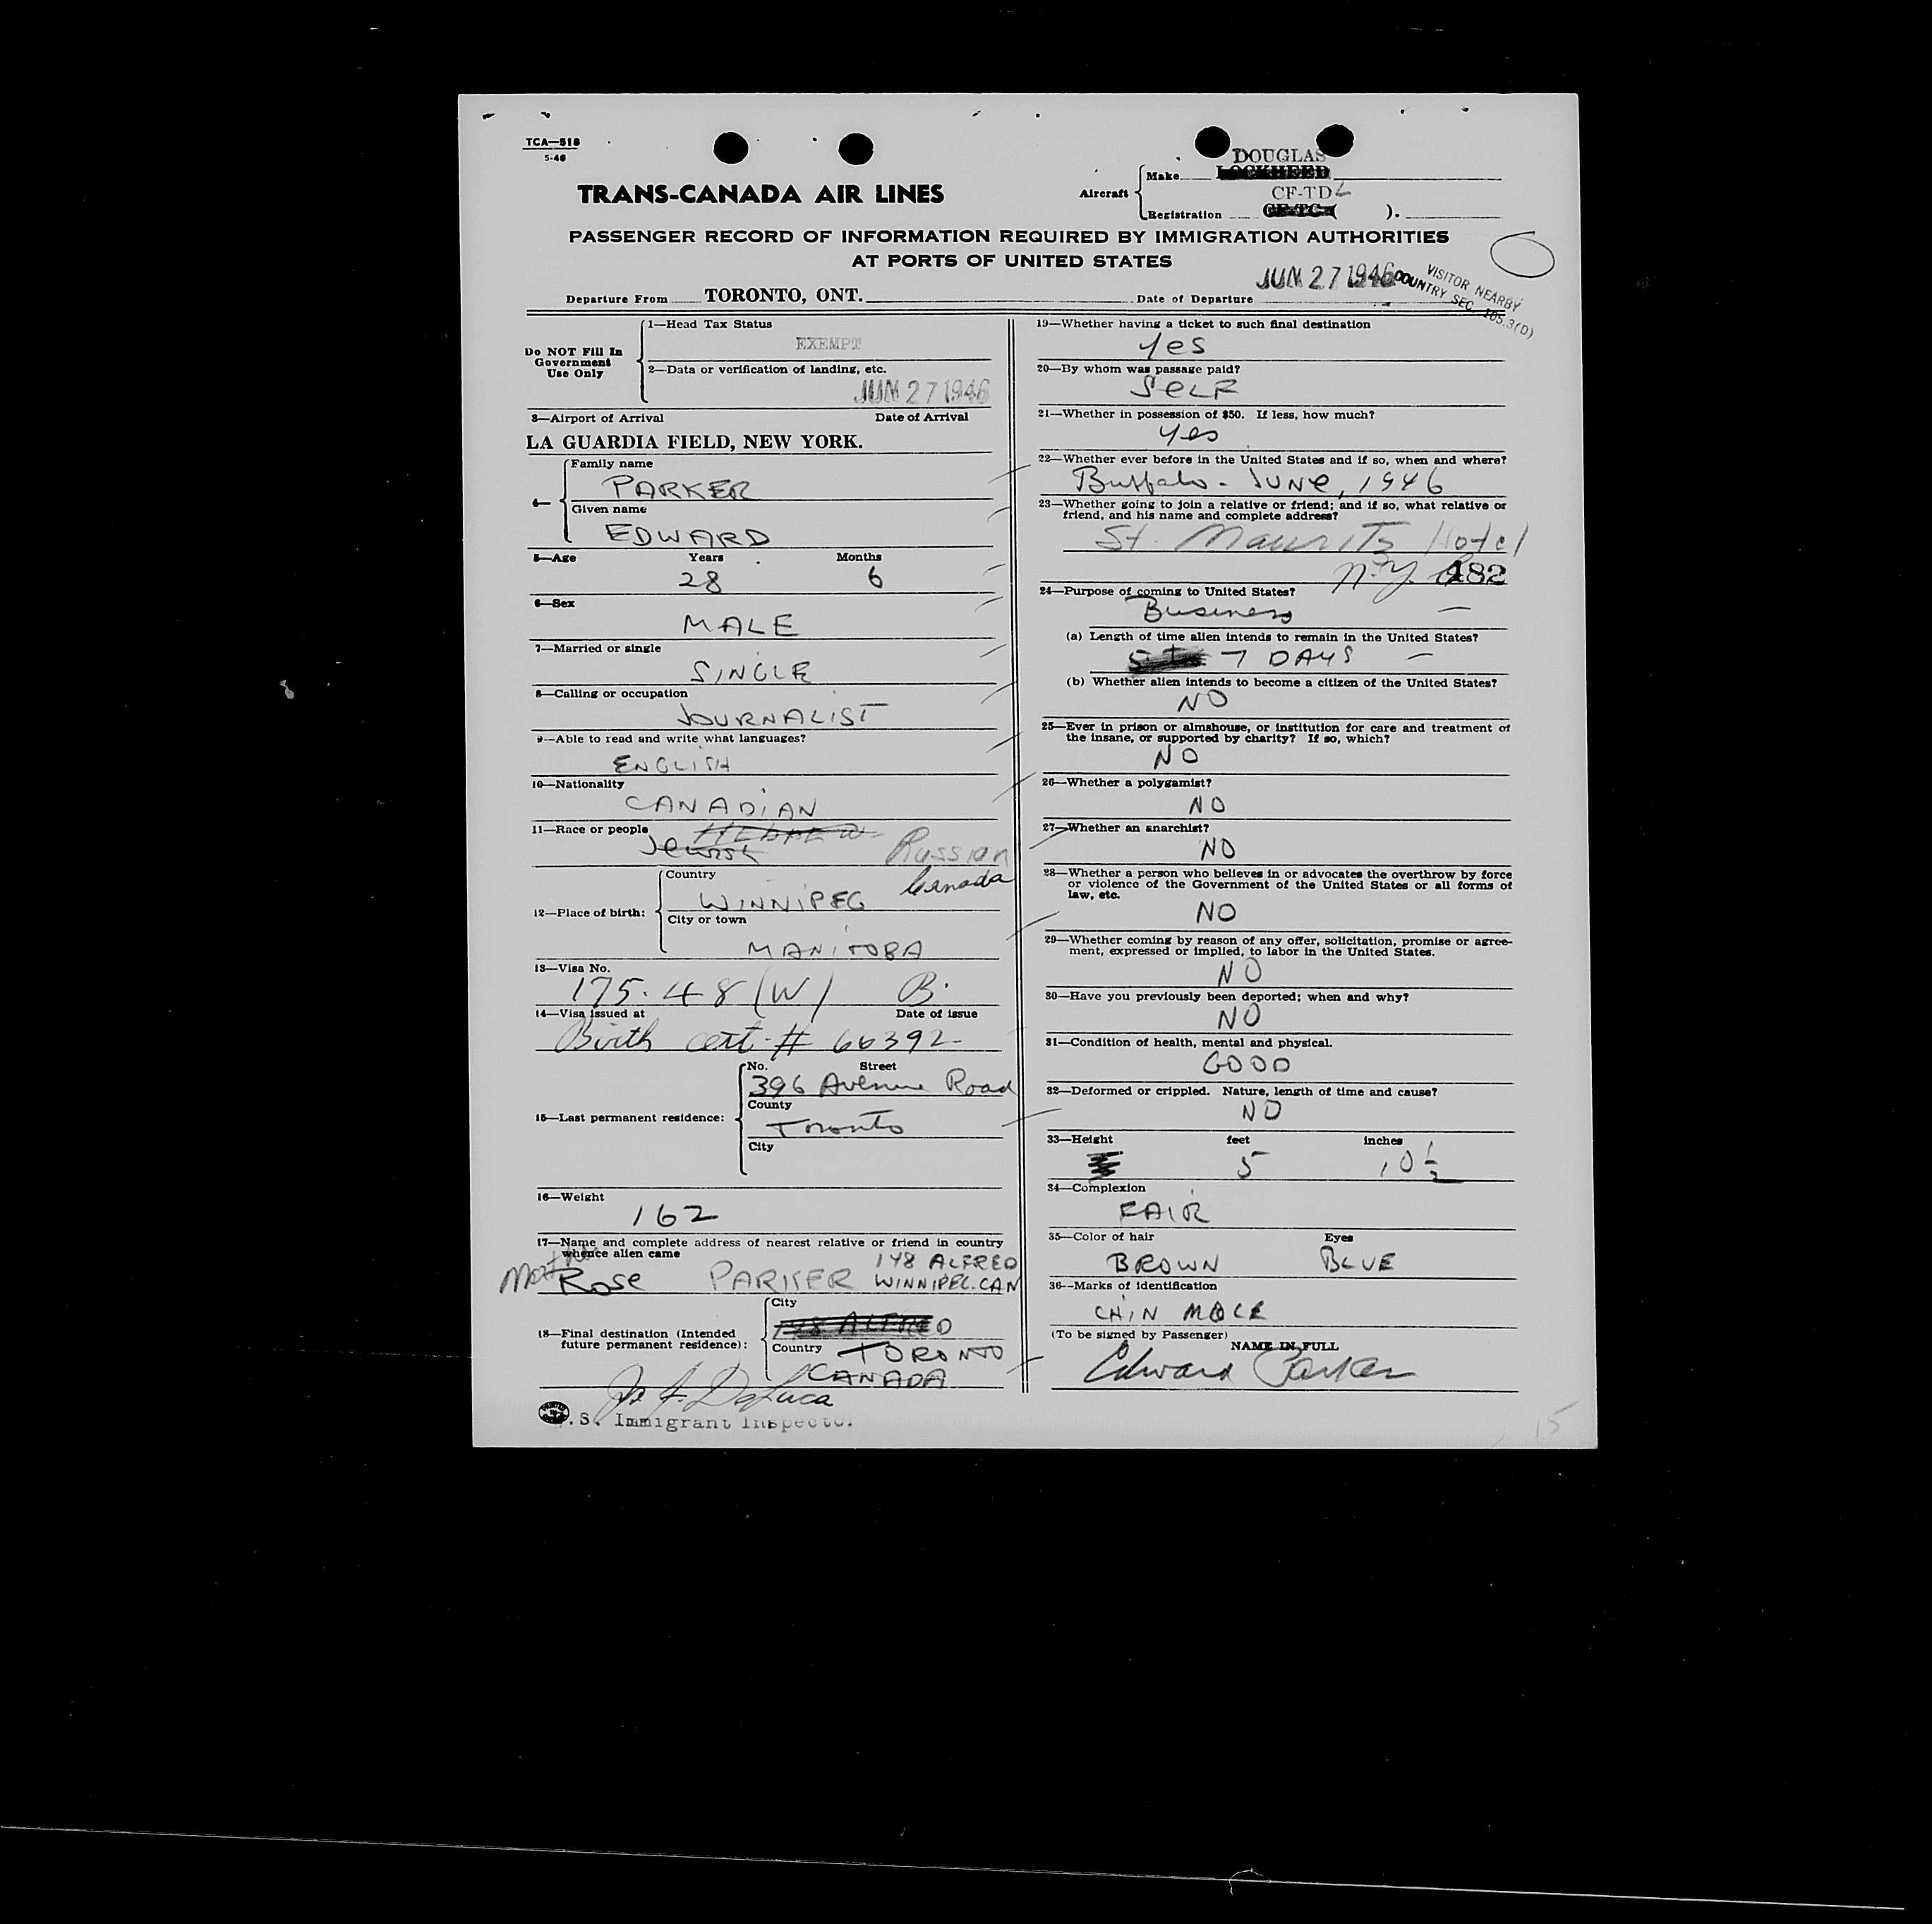 TCA—518
5-46
DOUGLAS
Make LOCKHEED
TRANS-CANADA AIR LINES
Aircraft
CF-TDL
Registration CF-TC-( ).
PASSENGER RECORD OF INFORMATION REQUIRED BY IMMIGRATION AUTHORITIES
AT PORTS OF UNITED STATES
JUN 27 1946
VISITOR NEARBY
COUNTRY SEC. 105.3(D)
Departure From TORONTO, ONT. Date of Departure
Do NOT Fill In
Government
Use Only
1—Head Tax Status
EXEMPT
2—Data or verification of landing, etc.
JUN 27 1946
3—Airport of Arrival Date of Arrival
LA GUARDIA FIELD, NEW YORK.
4—
Family name
PARKER
Given name
EDWARD
5—Age Years Months
28 6
6—Sex
MALE
7—Married or single
SINGLE
8—Calling or occupation
JOURNALIST
9—Able to read and write what languages?
ENGLISH
10—Nationality
CANADIAN
11—Race or people HEBREW
Jewish Russian
12—Place of birth:
Country
WINNIPEG Canada
City or town
MANITOBA
13—Visa No.
175.48 (W) B.
14—Visa issued at Date of issue
Birth cert # 66392
15—Last permanent residence:
No. Street
396 Avenue Road
County
Toronto
City
16—Weight
162
17—Name and complete address of nearest relative or friend in country
whence alien came
Mother Rose PARKER 148 ALFRED
WINNIPEG.CAN
18—Final destination (Intended
future permanent residence):
City
148 ALFRED
Country TORONTO
CANADA
U.S. Immigrant Inspector
19—Whether having a ticket to such final destination
Yes
20—By whom was passage paid?
SELF
21—Whether in possession of $50. If less, how much?
Yes
22—Whether ever before in the United States and if so, when and where?
Buffalo - JUNE, 1946
23—Whether going to join a relative or friend; and if so, what relative or
friend, and his name and complete address?
St. Mauritz Hotel
N.Y. 482
24—Purpose of coming to United States?
Business —
(a) Length of time alien intends to remain in the United States?
7 DAYS —
(b) Whether alien intends to become a citizen of the United States?
NO
25—Ever in prison or almshouse, or institution for care and treatment of
the insane, or supported by charity? If so, which?
NO
26—Whether a polygamist?
NO
27—Whether an anarchist?
NO
28—Whether a person who believes in or advocates the overthrow by force
or violence of the Government of the United States or all forms of
law, etc.
NO
29—Whether coming by reason of any offer, solicitation, promise or agree-
ment, expressed or implied, to labor in the United States.
NO
30—Have you previously been deported; when and why?
NO
31—Condition of health, mental and physical.
GOOD
32—Deformed or crippled. Nature, length of time and cause?
NO
33—Height feet inches
5 10 1/2
34—Complexion
FAIR
35—Color of hair Eyes
BROWN BLUE
36—Marks of identification
CHIN MOLE
(To be signed by Passenger)
NAME IN FULL
Edward Parker
15